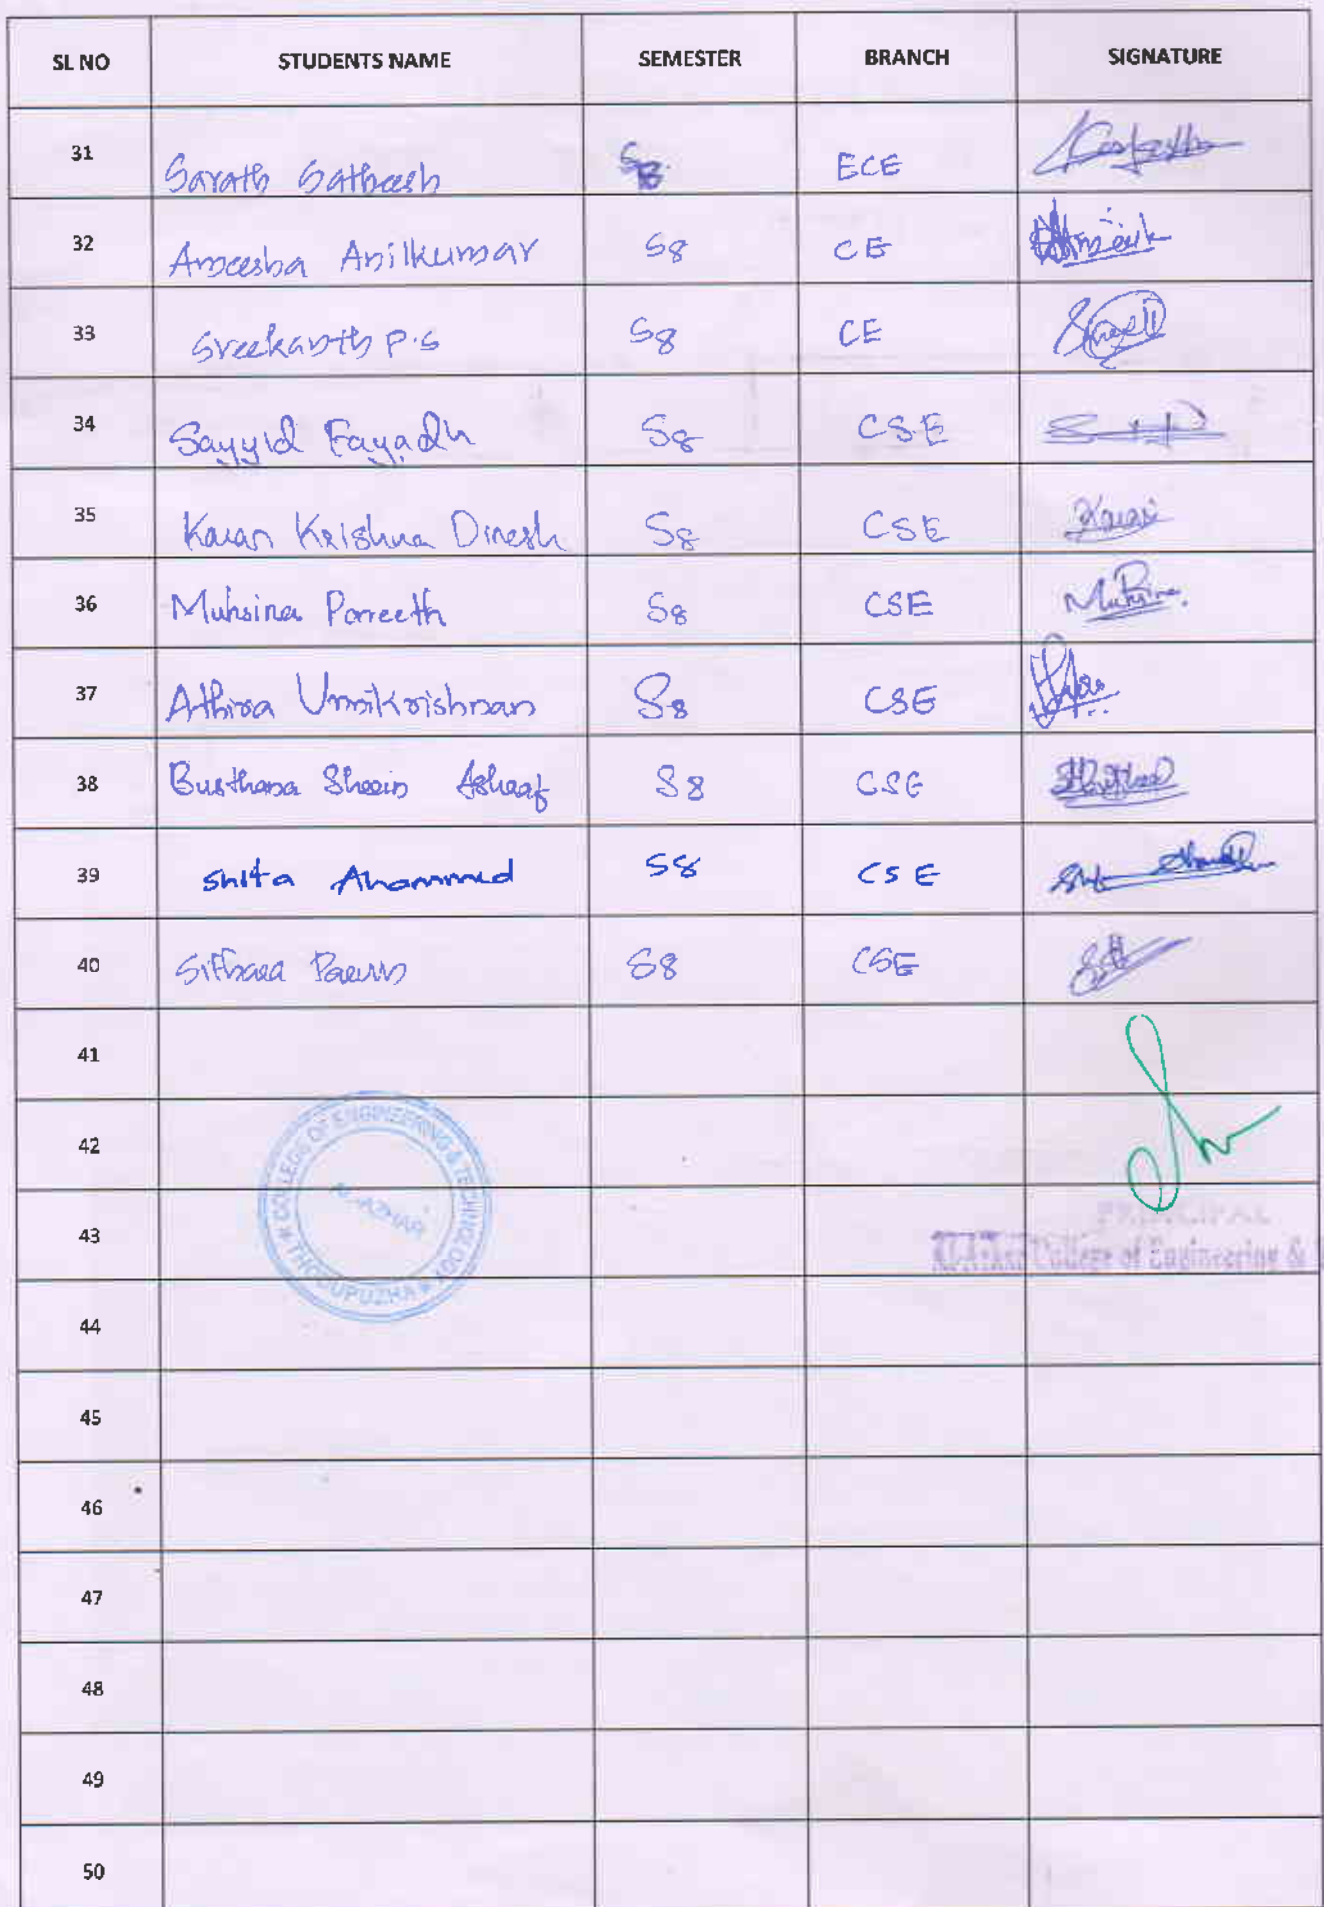 SL NO STUDENTS NAME SEMESTER BRANCH SIGNATURE
31 Sarath Satheesh S8 ECE
32 Ameesha Anilkumar S8 CE
33 Sreekanth P.S S8 CE
34 Sayyid Fayadh S8 CSE
35 Karan Krishna Dinesh S8 CSE Karan
36 Muhsina Parreeth S8 CSE Muhsina
37 Athira Unnikrishnan S8 CSE
38 Busthana Sherin Ashraf S8 CSE
39 Shifa Ahammed S8 CSE
40 Sithara S8 CSE
41
42
COLLEGE OF ENGINEERING & TECHNOLOGY
AL-AZHAR
THODUPUZHA
PRINCIPAL
43
Al-Azhar College of Engineering &
44
45
46
47
48
49
50